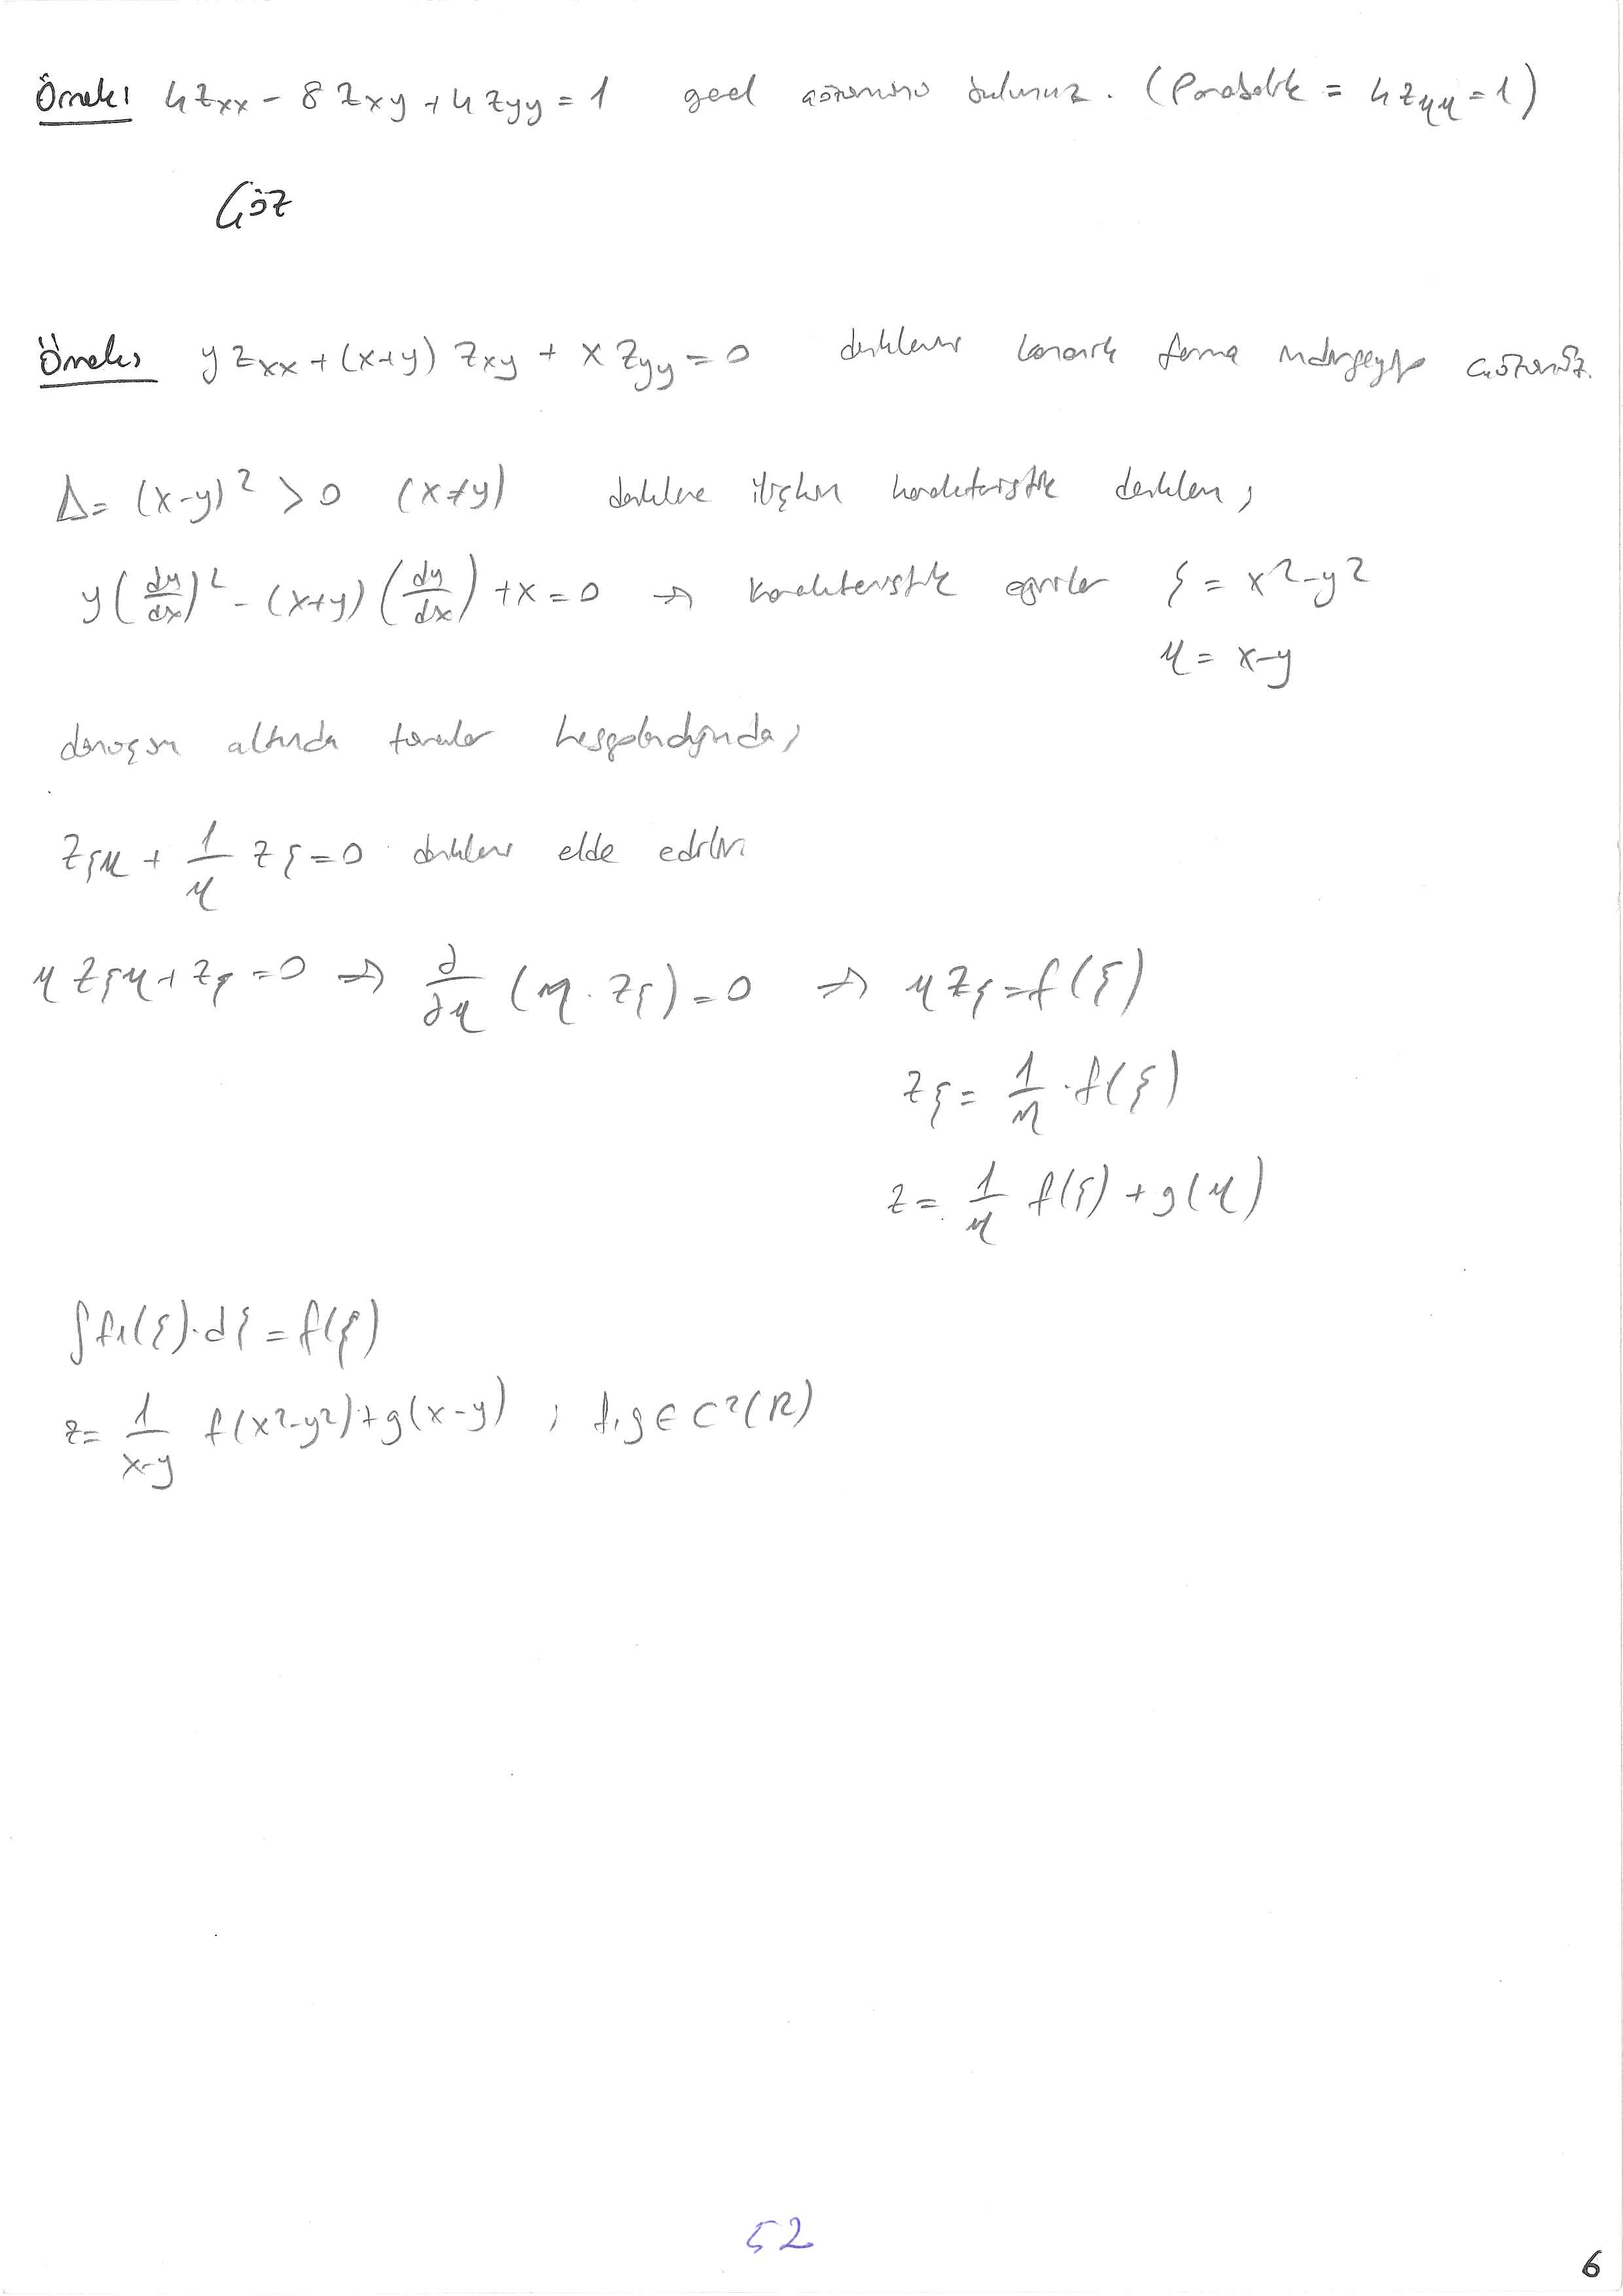 Örnek: 4Zxx - 8Zxy + 4Zyy = 1 genel çözümünü bulunuz. (Parabolik = 4Zηη = 1)
Çöz
Örnek: y Zxx + (x+y) Zxy + x Zyy = 0 denklemini kanonik forma indirgeyip çözünüz.
Δ = (x-y)² > 0 (x≠y) denkleme ilişkin karakteristik denklem,
y(dy/dx)² - (x+y)(dy/dx) + x = 0 → karakteristik eğriler ξ = x²-y²
η = x-y
dönüşüm altında türevler hesaplandığında,
Zξη + 1/η Zξ = 0 denklemi elde edilir
η Zξη + Zξ = 0 ⇒ ∂/∂η (η · Zξ) = 0 ⇒ η Zξ = f(ξ)
Zξ = 1/η · f(ξ)
z = 1/η f(ξ) + g(η)
∫f₁(ξ)·dξ = f(ξ)
z = 1/(x-y) f(x²-y²) + g(x-y) ; f,g ∈ C²(R)
52
6